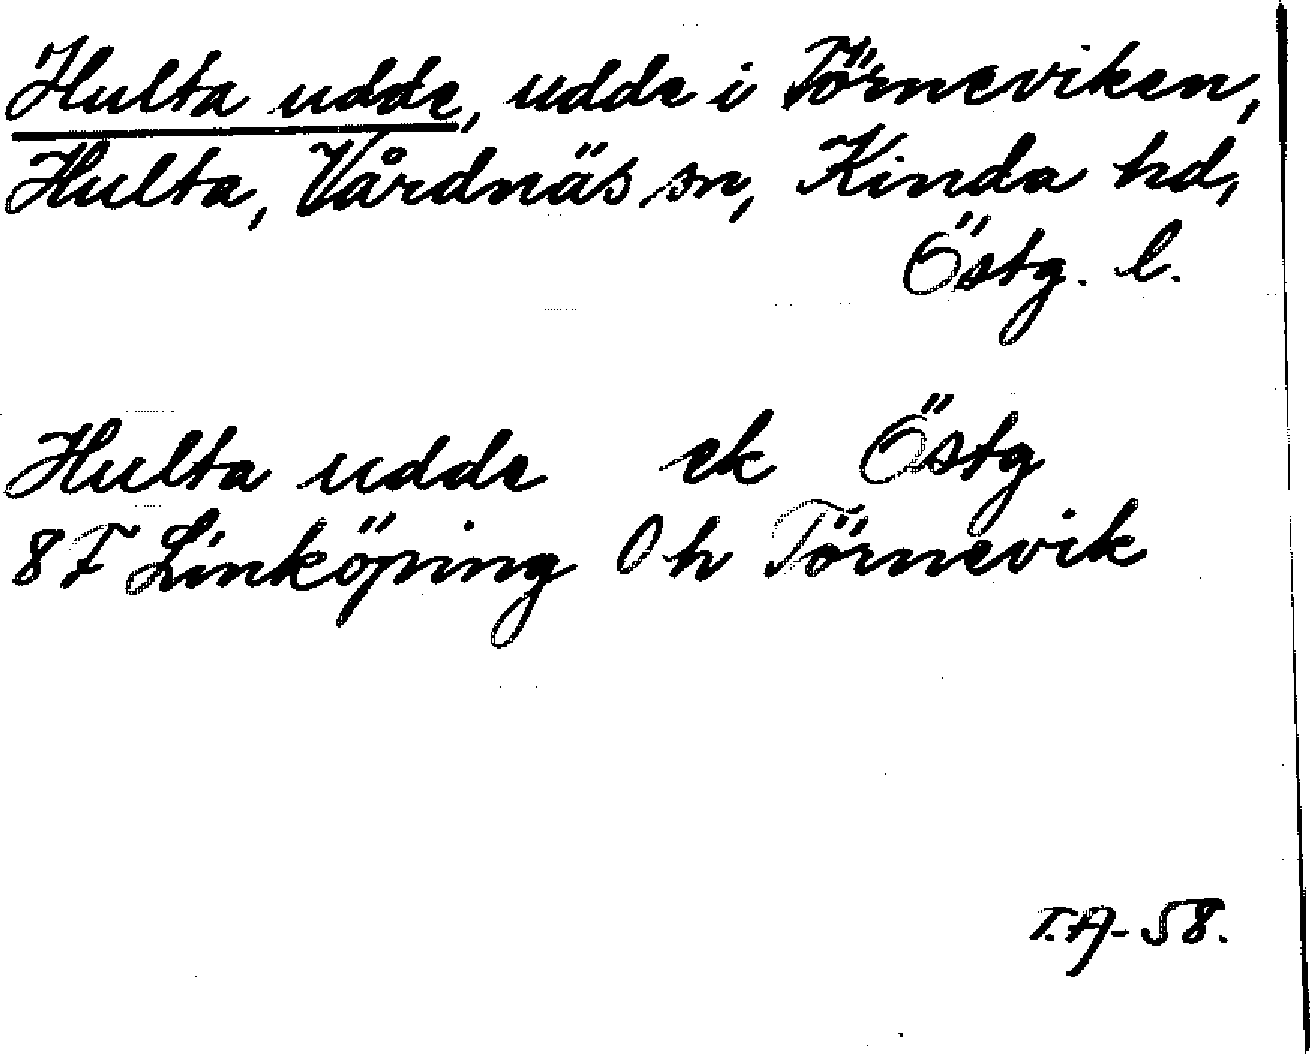 Hulta udde, udde i Törneviken,
Hulta, Vårdnäs sn, Kinda hd,
Östg. l.
Hulta udde ek Östg
8F Linköping 0h Törnevik
T.A-58.